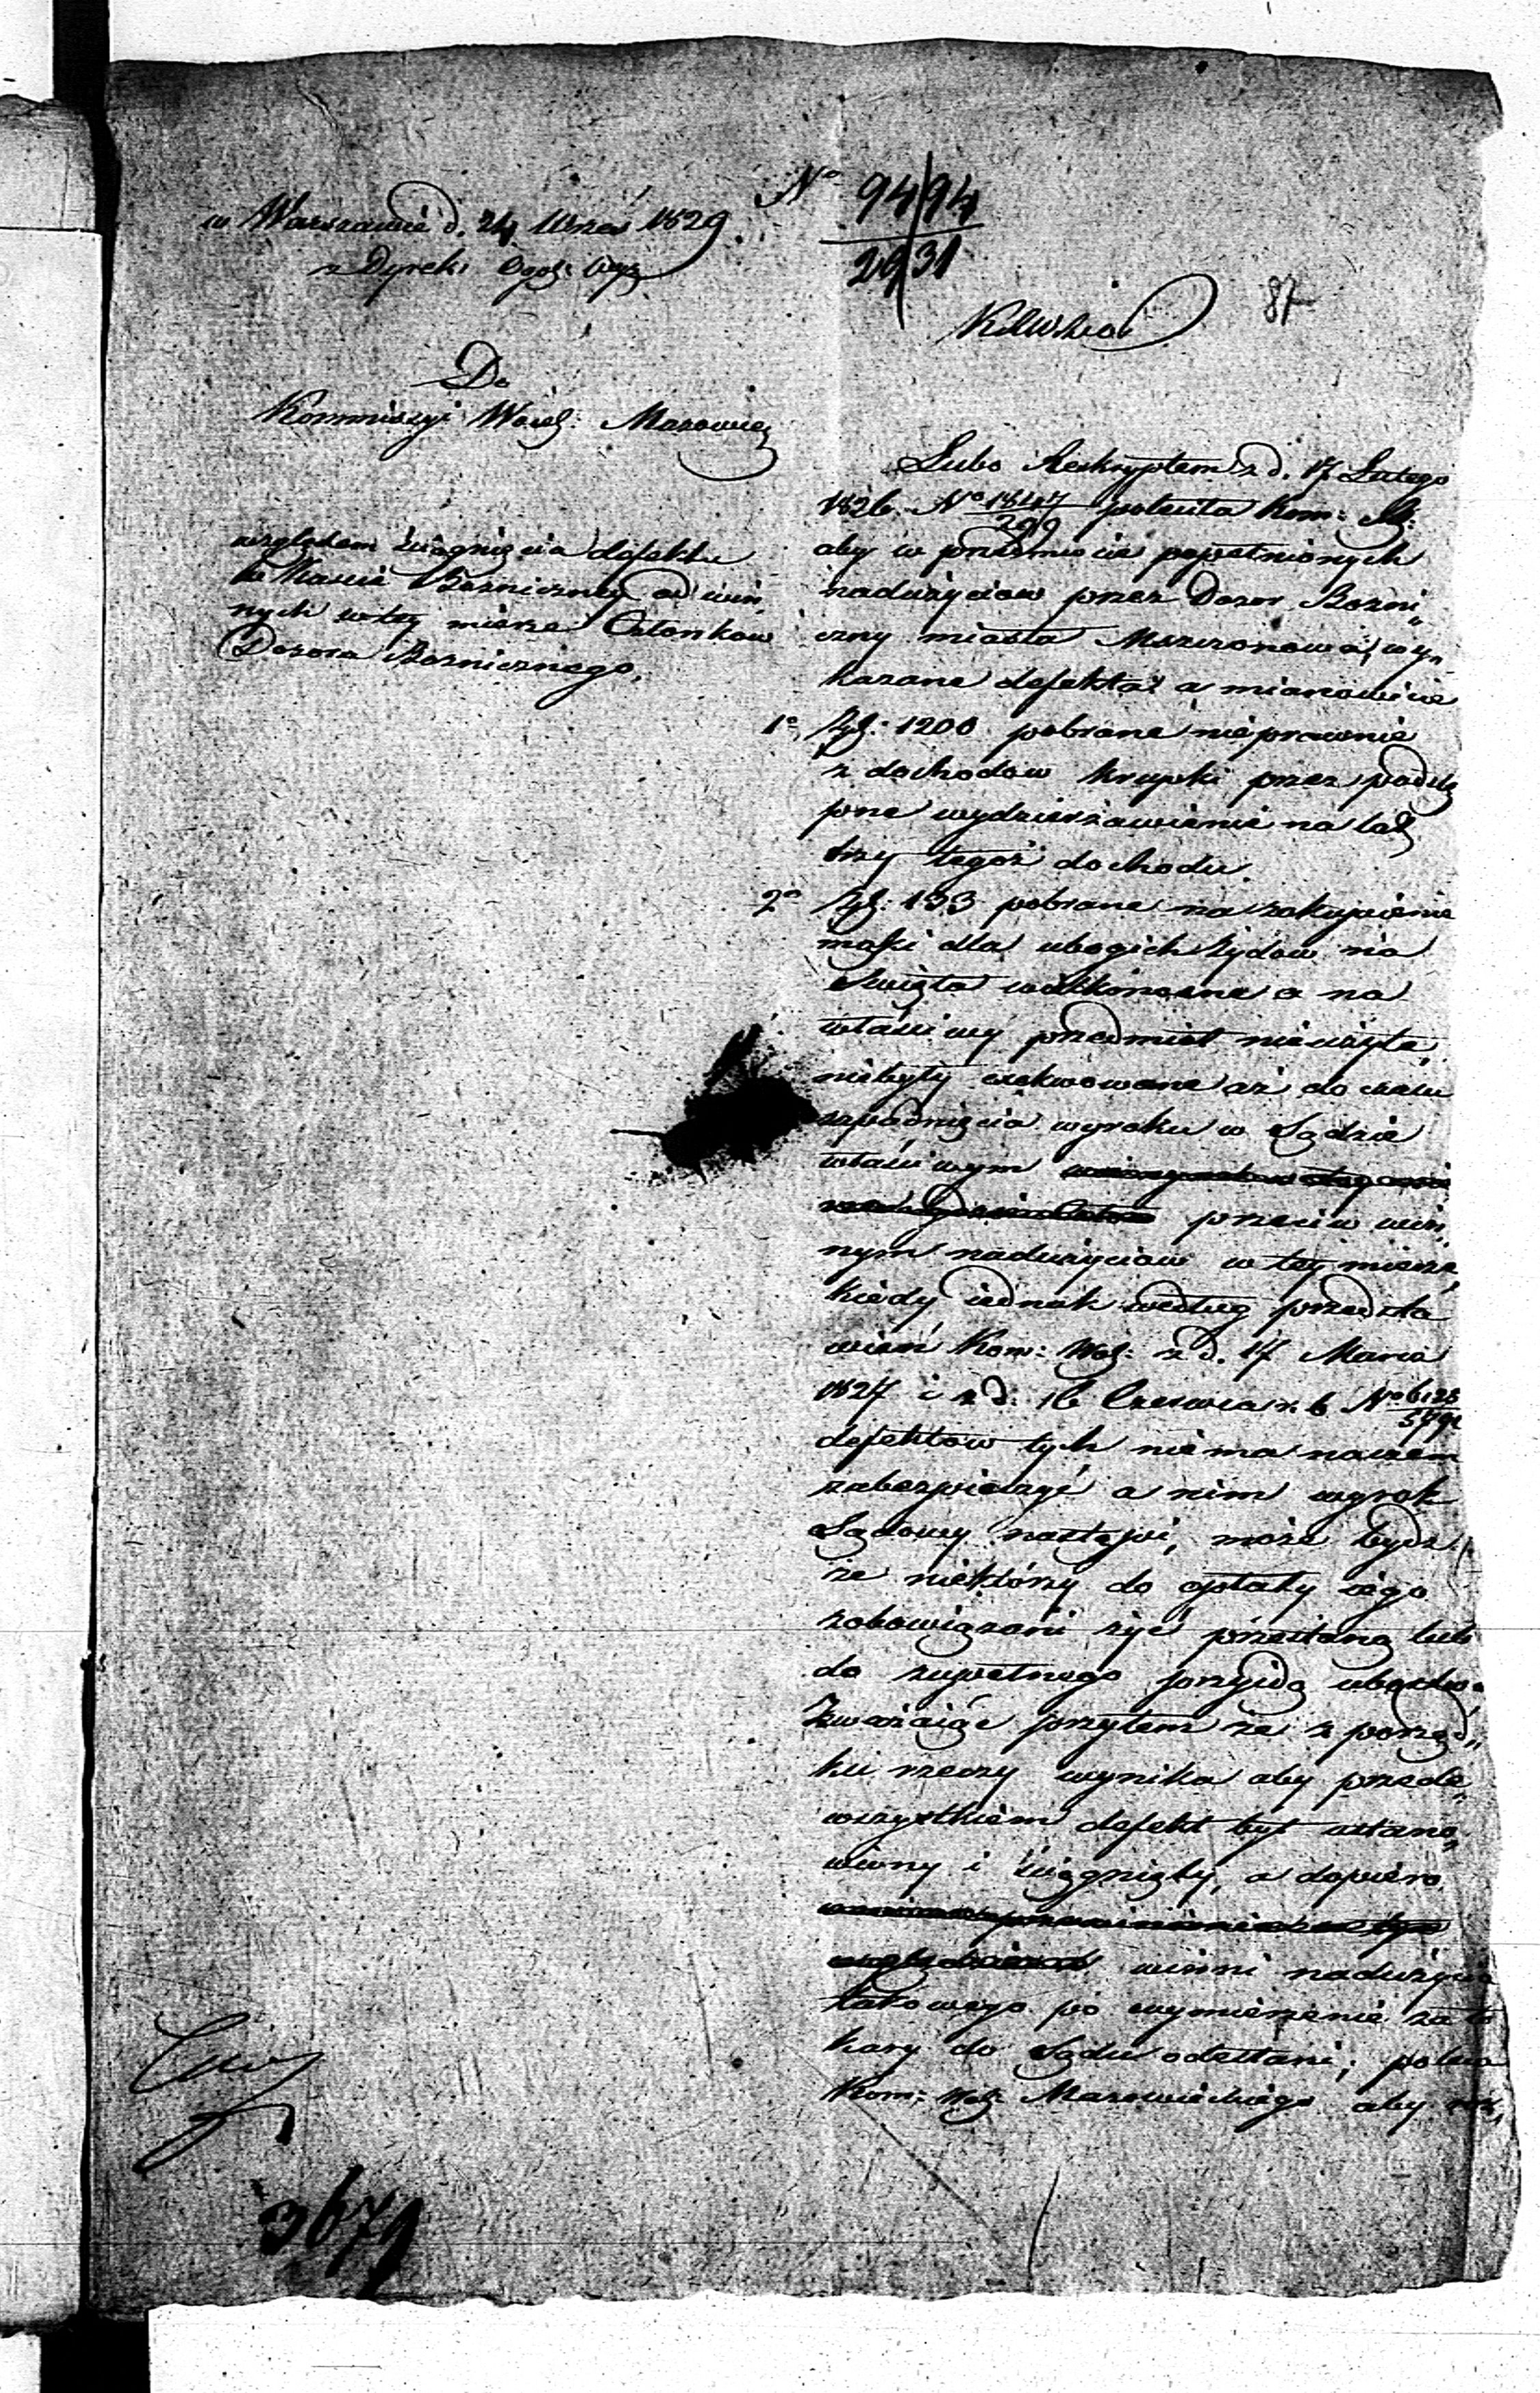 w Warszawie d. 24 Wrześ 1829.
z Dyrek: Ogól:
No 9494
2931
87
Do
Kommissyi Woiew: Mazowiec
względem ściągnięcia defektu
w Kassie Bozniczney od win„
nych w tey mierze Członkow
Dozoru Boznicznego.
Lubo Reskryptem z d. 17 Lutego
1826 No 18447/299 poleciła Kom: R:
aby w przedmiocie popełnionych
nadużyciow przez Dozor Bozni„
czny miasta Mszczonowa, wy„
kazane defekta a mianowicie
1o złp: 1200 pobrane nieprawnie
z dochodow krupki przez podstę
pne wydzierżawienie na lat
trzy tegoż dochodu.
2o złp: 133 pobrane na zakupienie
mąki dla ubogich żydow na
Święta wielkanocne a na
właściwy przedmiot nieużyte,
niebyły exekwowane aż do czasu
zapadnięcia wyroku w Sądzie
właściwym
przeciw win„
nym nadużyciow w tey mierze,
kiedy iednak według przedsta
wień Kom: Woj: z d. 17 Marca
1827 i z d. 16 Czerwca r. b No 6128
defektow tych niema na czem
zabezpieczyć a nim wyrok
Sądowy nastąpi, może bydź
że niektórzy do opłaty iego
zobowiązani żyć przestaną lub
do zupełnego przyidą ubóstwa
Zważaiąc przytem że z porząd„
ku rzeczy wynika aby przede„
wszystkiem defekt był ustano„
wiony i ściągnięty, a dopiero
winni nadużycia
takowego po wymierzenie za to
kary do Sądu odesłani; poleca
Kom: Woj: Mazowieckiego aby
3671